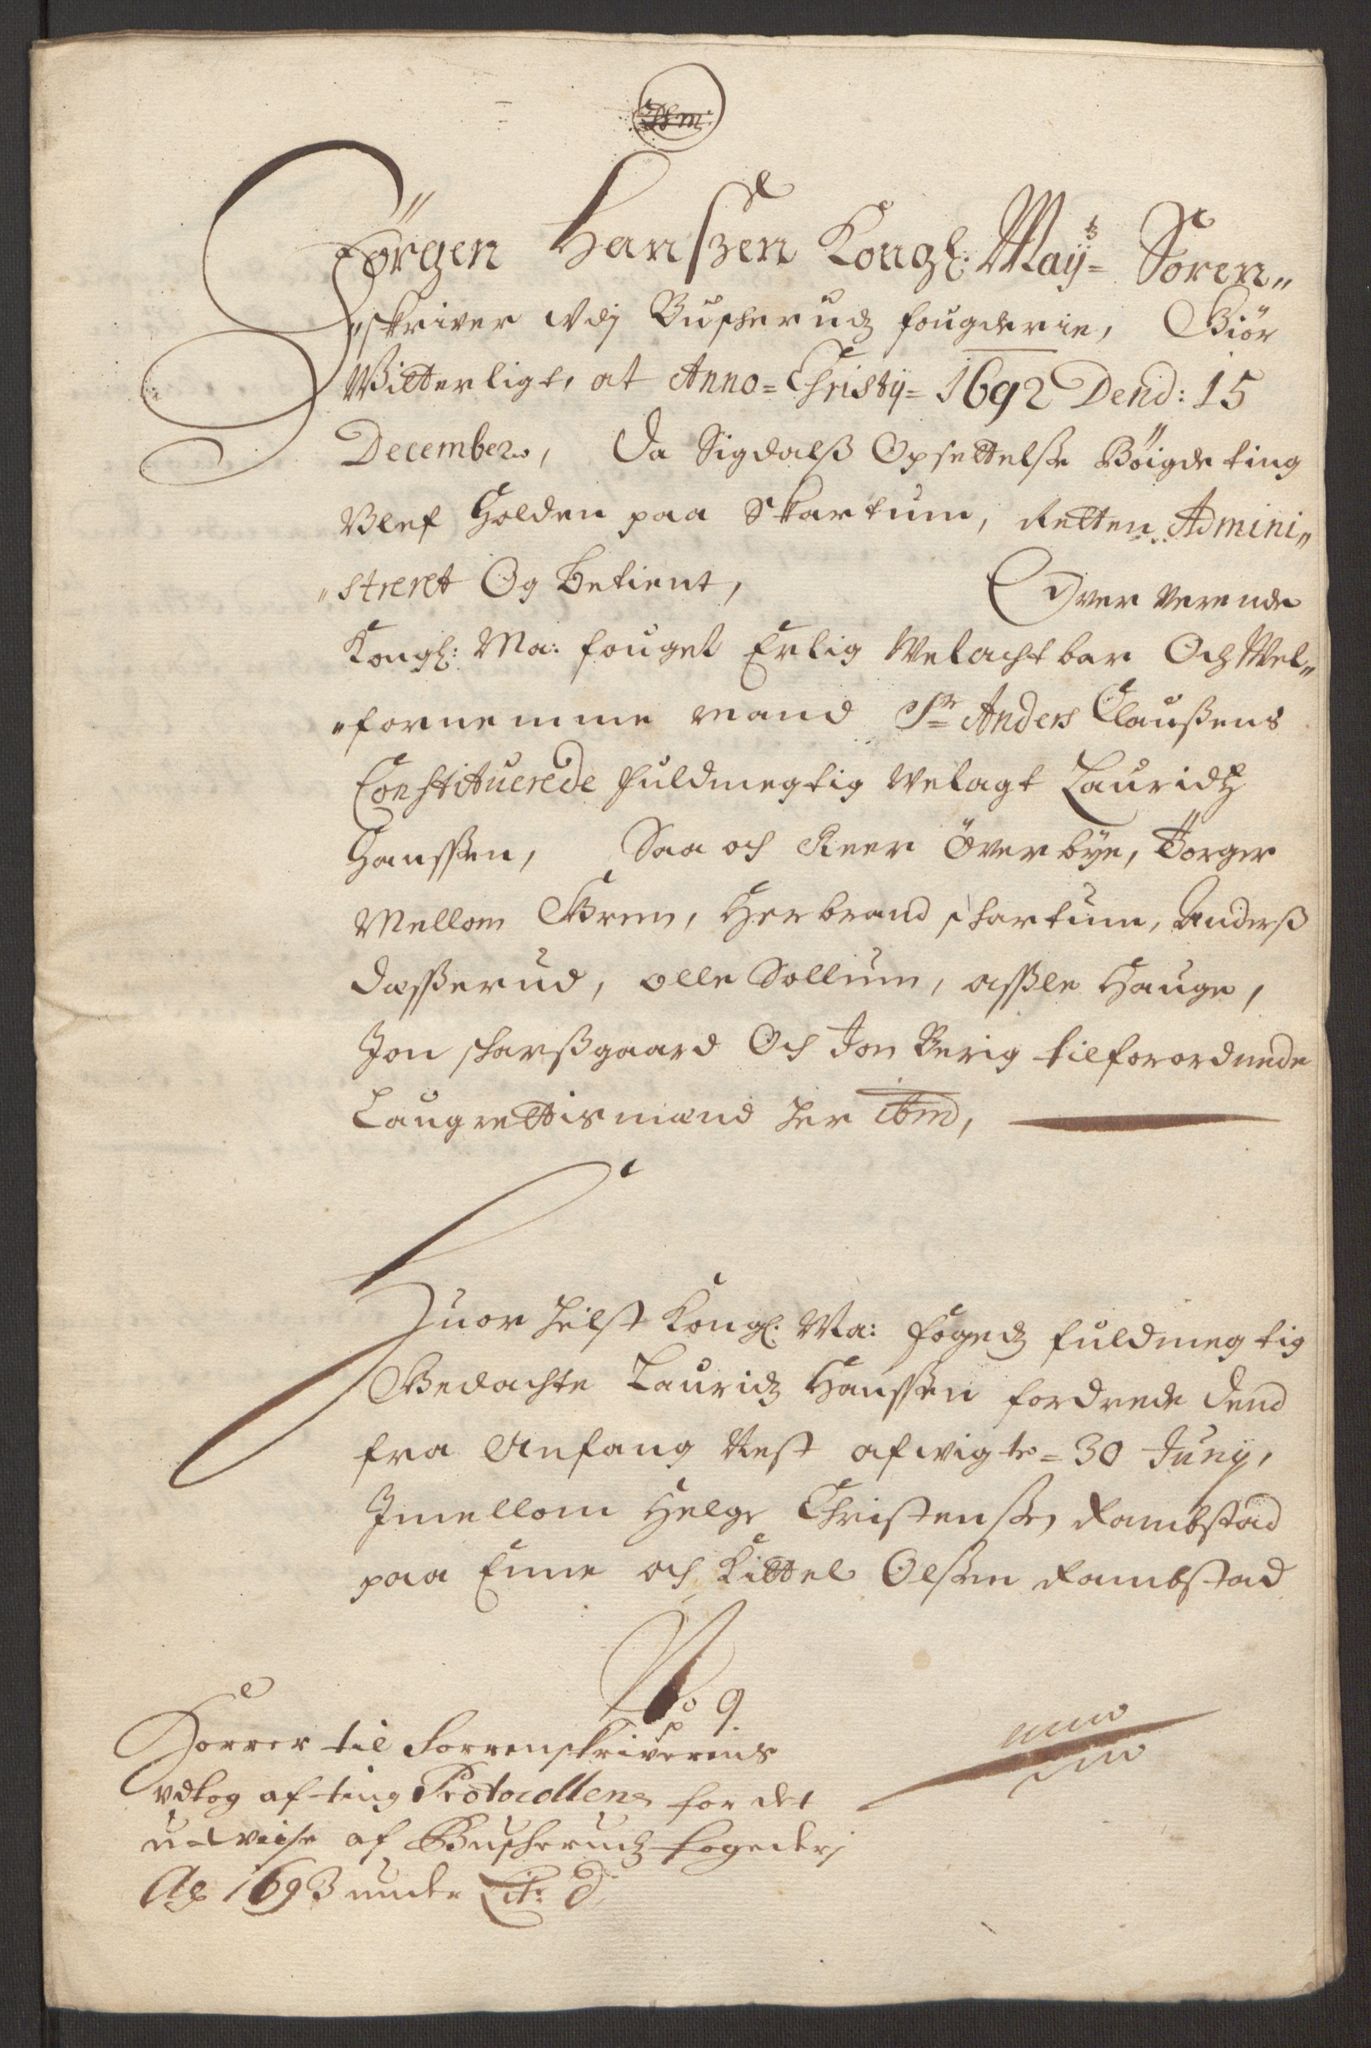 Jørgen Hanszen Kongl: Mayts Soren„
„skriver Vdj Buscherudz fougderie, Giör
Witterligt, at Anno=Christij=1692 Dend: 15
December, Da Sigdalß Opsettelse Böigdeting
Blef Holden paa Skartum, Retten Admini„
„streret Og betient, Over verende
Kongl: Ma: fouget Erlig Welachtbar Och Wel„
„fornemme mand Sr Anders Claußens
Constituerede fuldmegtig Velagt Lauridtz
Hanssen, Saa och Reer Överbÿe, Törger
Mellom Gren, Herbrand schartum, Anderß
Daßerud, olle Sollum, aßle Hauge,
Jon scharßgaard Och Jon Berig tilforordnede
Laugrettismænd her ibm,
Huor hilst Kongl. Ma: fogedz fuldmegtig
Bedachte Lauridz Hanssen fordrede dend
fra Anfang Rest afvigte=30 Junij,
Imellom Helge Christensen Rambstad
paa Eene och Kittel Olsen Rambstad
No 9
Hörrer til Sorrenskriverens
vdtog af ting Protocollen for det
udviise af Buscheruds fogederj
Ao 1693 under Lit: d.